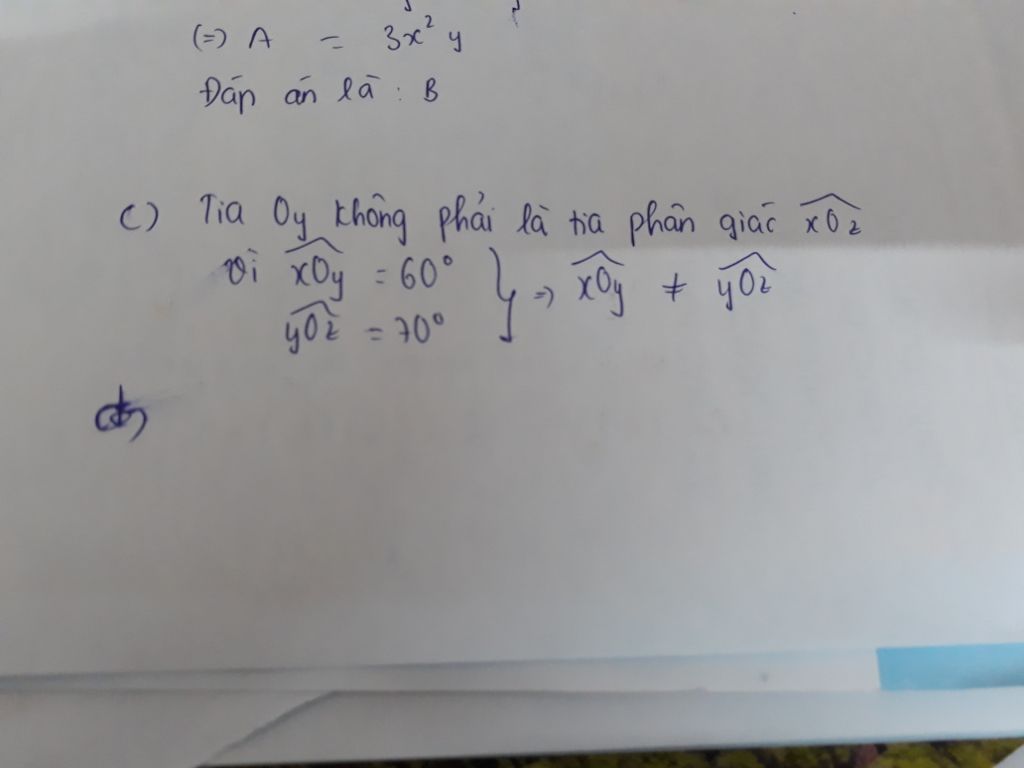 (=) A = 3x² y
Đáp án là : B
C) Tia Oy không phải là tia phân giác xOz
vì xOy = 60° } => xOy ≠ yOz
yOz = 70°
d)